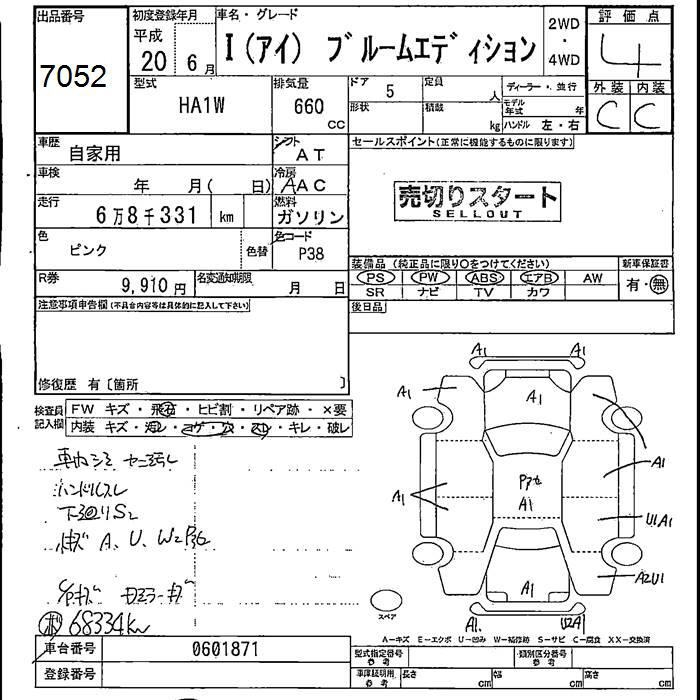 出品番号
7052
初度登録年月
平成
20 6月
車名・グレード
I(アイ) ブルームエディション
2WD
・
4WD
評価点
4
型式
HA1W
排気量
660
CC
ドア
5
定員
人
ディーラー・並行
形状
積載
kg
モデル年式
年
ハンドル 左・右
外装 内装
C C
車歴
自家用
シフト
AT
車検
年 月( 日)
冷房
AAC
走行
6万8千331 km
燃料
ガソリン
色
ピンク
色替
色コード
P38
R券
9,910円
名変通知期限
月 日
セールスポイント(正常に機能するものに限ります)
売切りスタート
SELLOUT
装備品(純正品に限り○をつけてください)
PS PW ABS エアB AW
SR ナビ TV カワ
新車保証書
有・無
後日品
注意事項申告欄(不具合内容等は具体的に記入して下さい)
修復歴 有〔箇所 〕
検査員記入欄
FW キズ・飛石・ヒビ割・リペア跡・×要
内装 キズ・汚レ・コゲ・穴・スレ・キレ・破レ
車内シミ
ハンドルスレ
下廻りS2
A、U、W2
68334km
A1 A1
A1 A1
A1
A1
A1
U1A1
A2U1
A1
A1 U2A1
スペア
A-キズ E-エクボ U-凹み W-補修跡 S-サビ C-腐食 XX-交換済
車台番号
0601871
登録番号
型式指定番号
参考
類別区分番号
参考
車庫証明用
参考
長さ cm
幅 cm
高さ cm